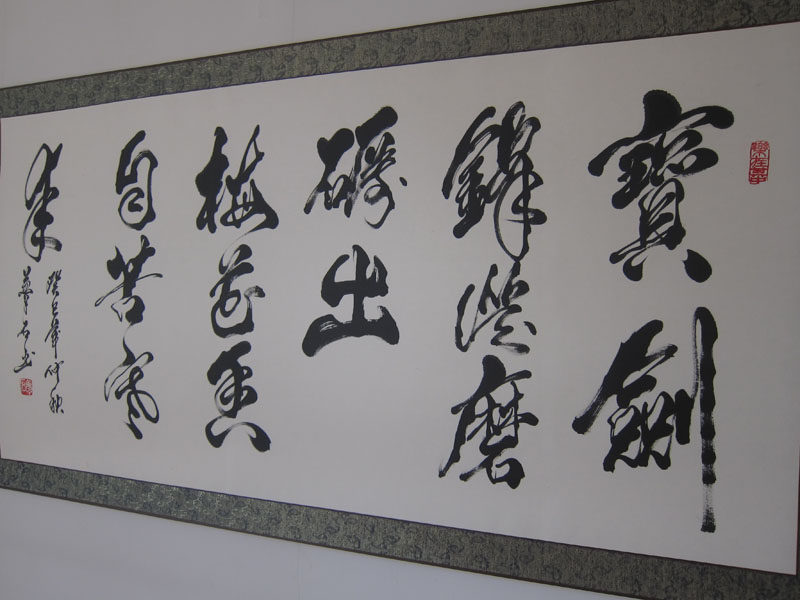 寶劍
鋒從磨
礪出
梅花香
自苦寒
來
癸巳年仲秋
石书